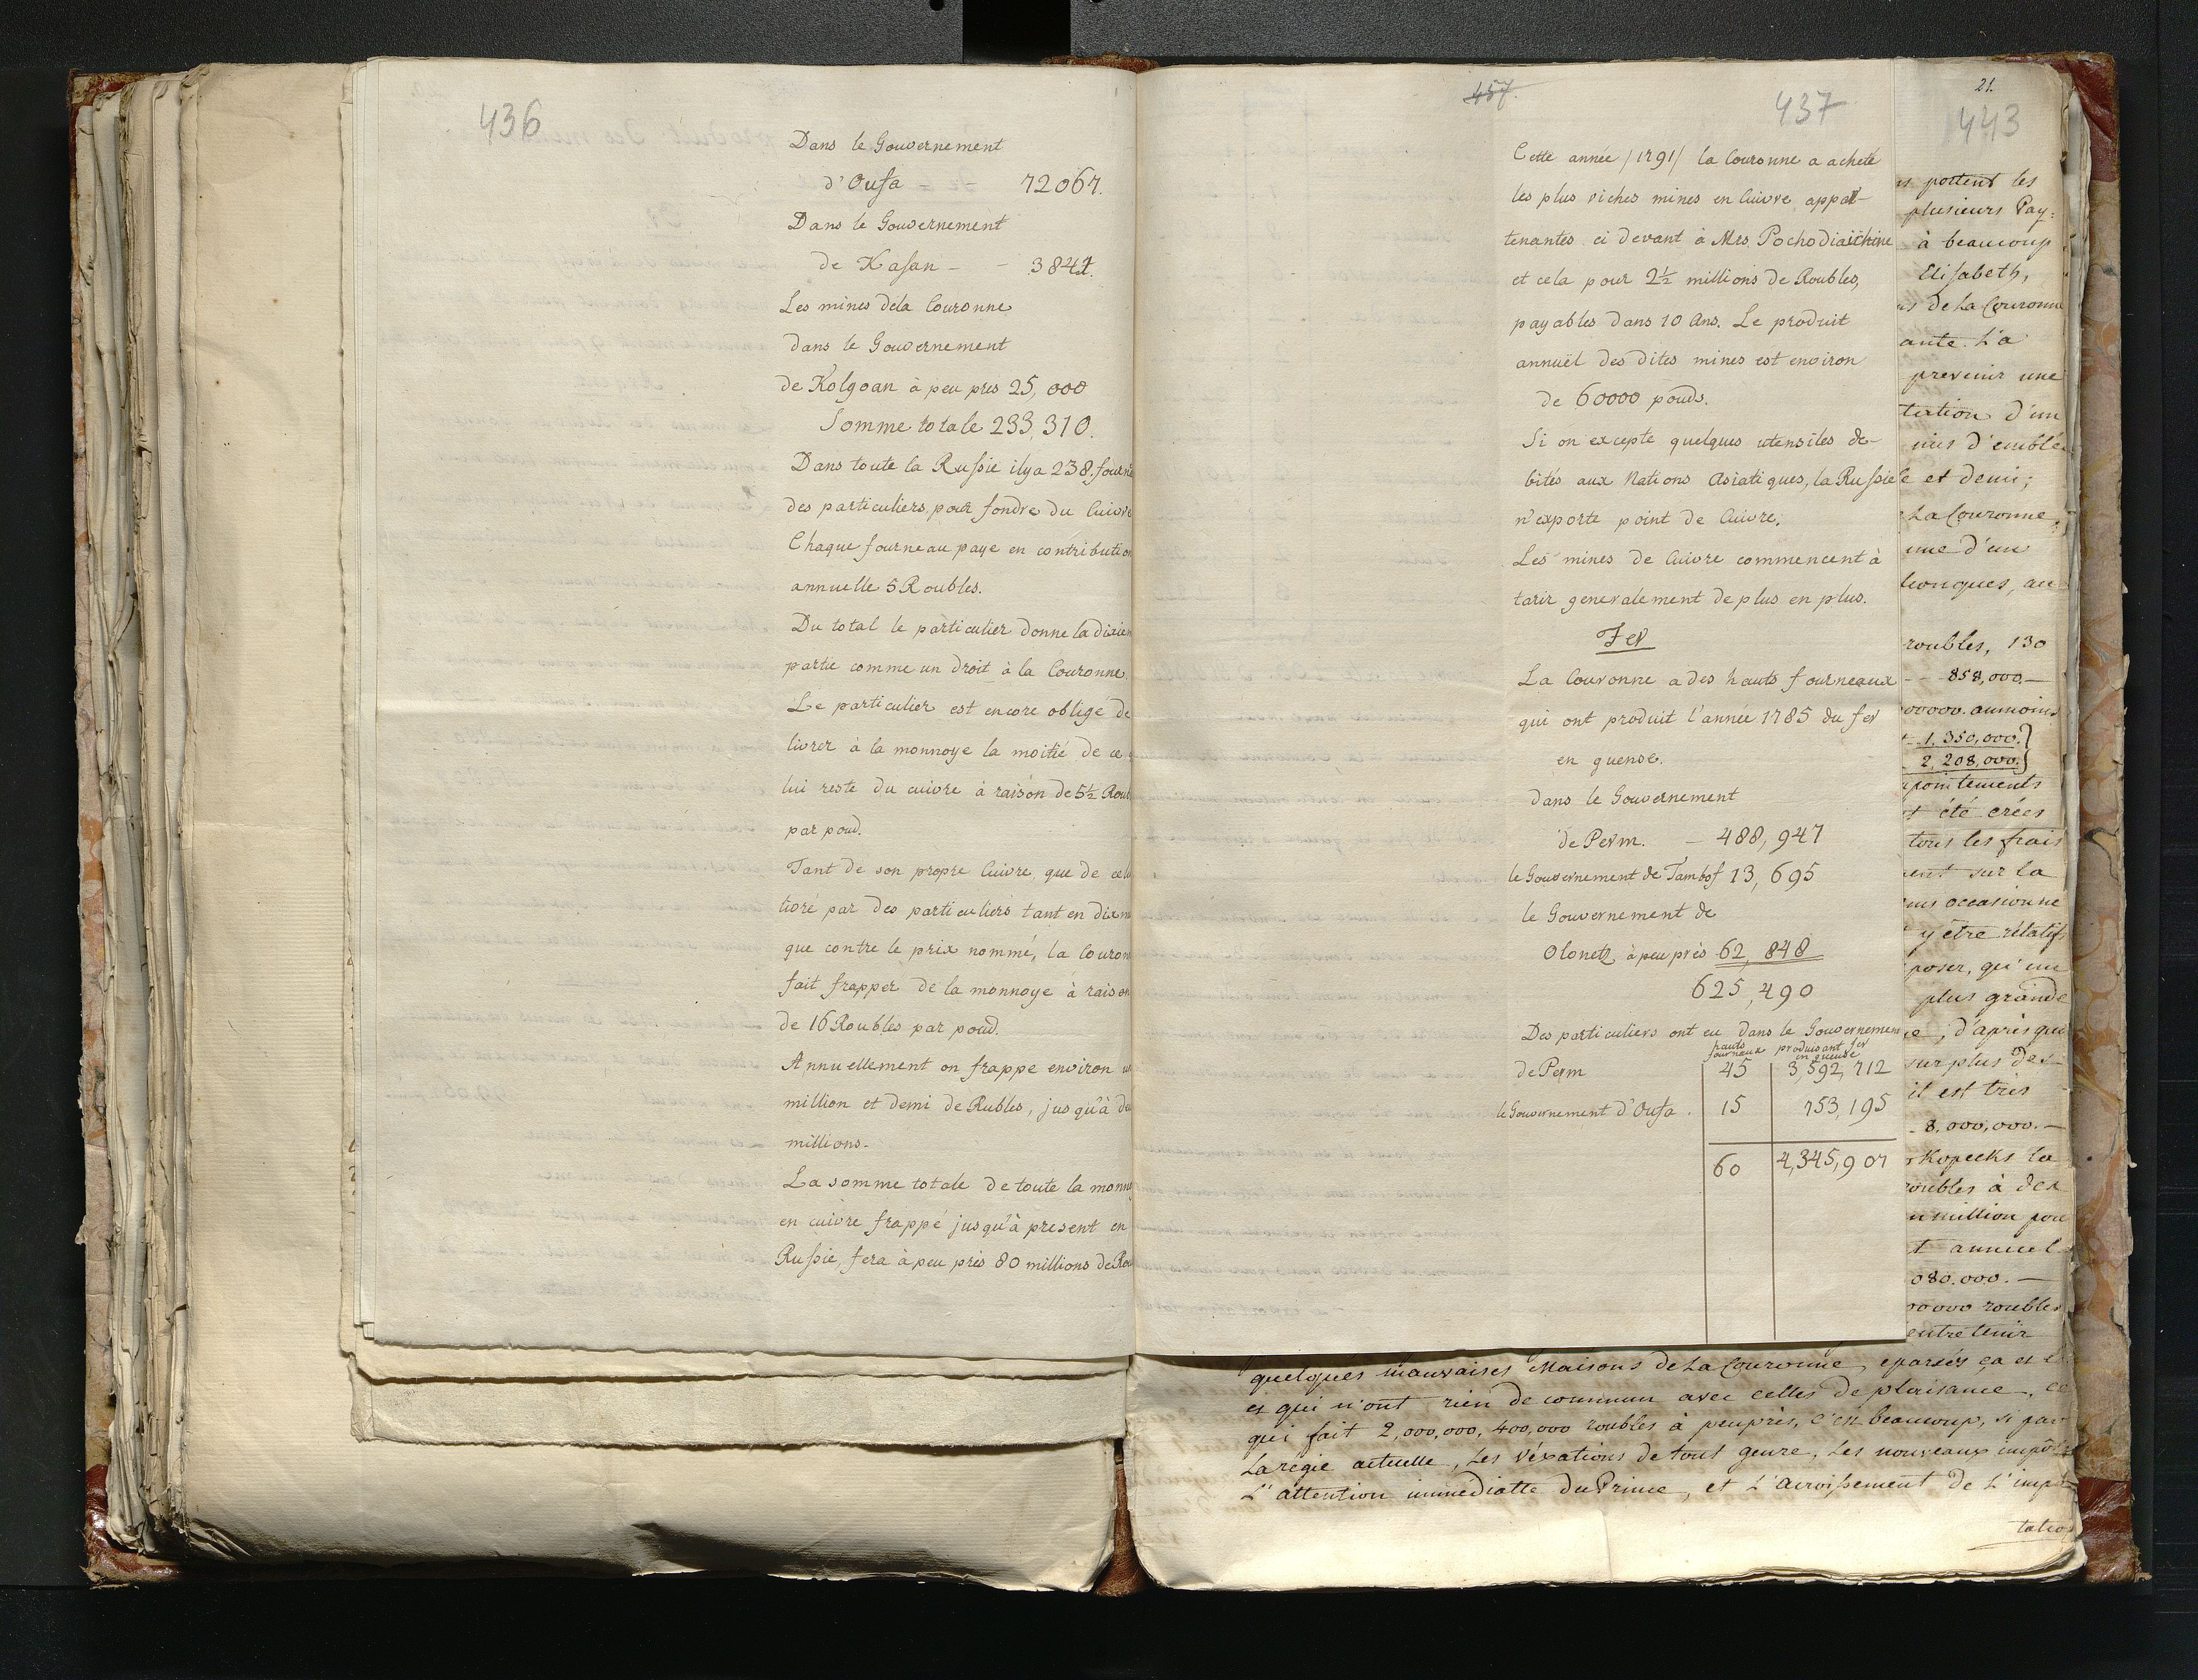 436
Dans le Gouvernement
d'Oufa - - 72067.
Dans le Gouvernement
de Kasan - - 3847.
Les mines dela Couronne
dans le Gouvernement
de Kolgoan à peu pres 25,000
Somme totale 233,310.
Dans toute la Russie ilya 238. fourne
des particuliers pour fondre du Cuivre
Chaque fourneau paye en contribution
annuelle 5 Roubles.
Du total le particulier donne la dixiem
partie comme un droit à la Couronne.
Le particulier est encore oblige de
livrer à la monnoye la moitié de ce
lui reste du cuivre à raison de 5½ Roub
par poud.
Tant de son propre Cuivre, que de celu
livré par des particuliers tant en dixm
que contre le prix nommé, la Couron
fait frapper de la monnoye à raison
de 16 Roubles par poud.
Annuellement on frappe environ un
million et demi de Rubles, jusqu'à deu
millions.
La somme totale de toute la monno
en cuivre frappé jusqu'à present en
Russie, fera à peu près 80 millions de Rou
457.
437
Cette année /1791/ la Couronne a acheté
les plus riches mines en Cuivre appar-
tenantes ci devant à Mrs Pochodiaichine
et cela pour 2½ millions de Roubles,
payables dans 10 Ans. Le produit
annuël des dites mines est environ
de 60000 pouds.
Si on excepte quelques utensiles de-
bités aux Nations Asiatiques, la Russie
n'exporte point de Cuivre.
Les mines de Cuivre commencent à
tarir generalement de plus en plus.
Fer
La Couronne a des hauts fourneaux
qui ont produit l'année 1785 du fer
en guense.
dans le Gouvernement
de Perm. - 488,947
le Gouvernement de Tambof 13,695
le Gouvernement de
Olonetz à peu près 62,848
625,490
Des particuliers ont eu dans le Gouvernemen
hauts fourneaux produisant fer en gueuse
de Perm 45 3,592,712
le Gouvernement d'Oufa. 15 753,195
60 4,345,907
21.
443
portent les
plusieurs Pay=
à beaucoup
Elisabeth,
de La Couronne
ante. La
prevenir une
tation d'un
mis d'emblé
et demi;
La Couronne,
une d'un
conques, au
roubles, 130
- - 858,000.-
00000. aumoins
1,350,000.
2,208,000.
pointements
été crées
tous les frais
ent sur la
occasionne
y être rélatifs
poser, qu'un
plus grande
; d'après que
surplus des
il est très
8,000,000.-
Kopecks la
roubles à des
million pou
annuel
080.000.-
0000 roubles
entretenir
quelques mauvaises Maisons de La Couronne, eparsés ça et l
et qui n'ont rien de commun avec celles de plaisance, ce
qui fait 2,000,000, 400,000 roubles à peuprès, c'est beaucoup, si par
La régie actuelle, Les véxations de tout genre, Les nouveaux impôts
L'attention immédiatte du Prince, et L'acroissement de L'impo
tation